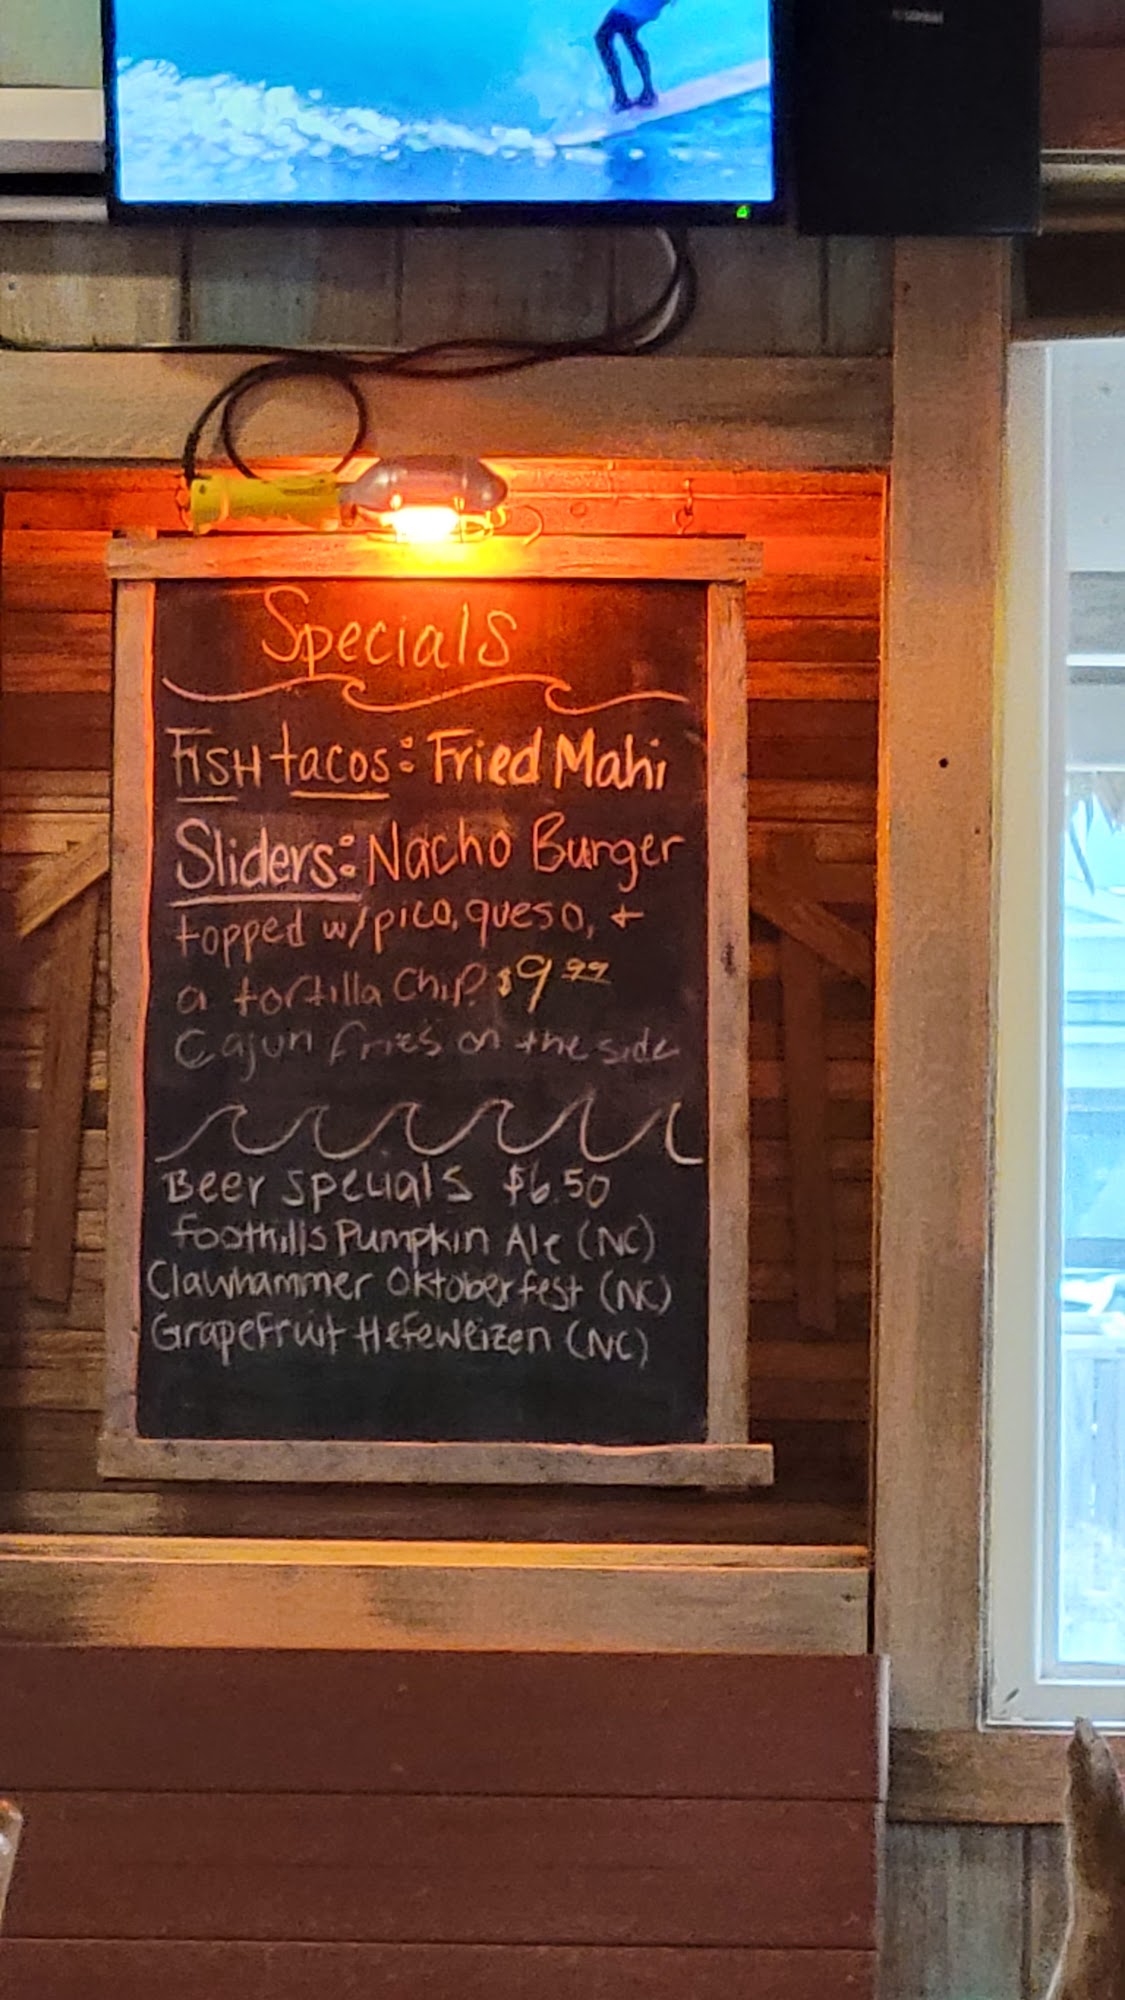 Specials
Fish tacos: Fried Mahi
Sliders: Nacho Burger
topped w/pico, queso, +
a tortilla chip. $9.99
Cajun fries on the side
Beer specials $6.50
Foothills Pumpkin Ale (NC)
Clawhammer Oktoberfest (NC)
Grapefruit Hefeweizen (NC)